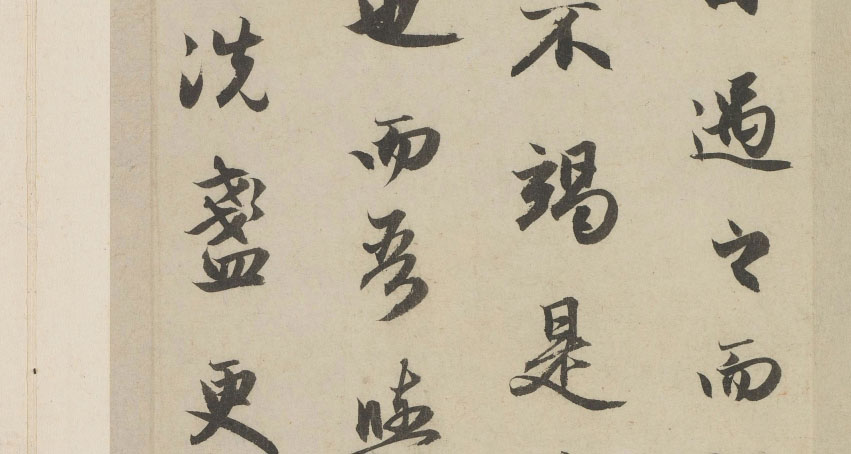 遇之而
不竭是
也而吾
洗盞更